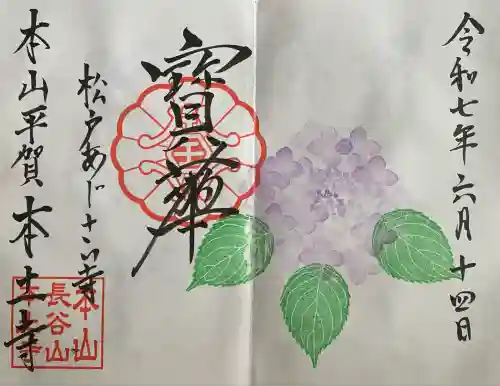 令和七年六月十四日
寶
松戸あじさい寺
本山平賀本土寺
本山
長谷山
本土寺